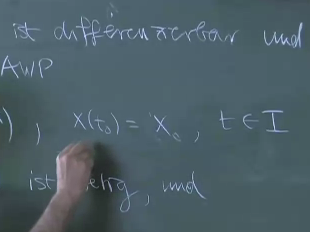 ist differenzierbar und
AWP
), x(t₀) = x₀, t ∈ I
ist und